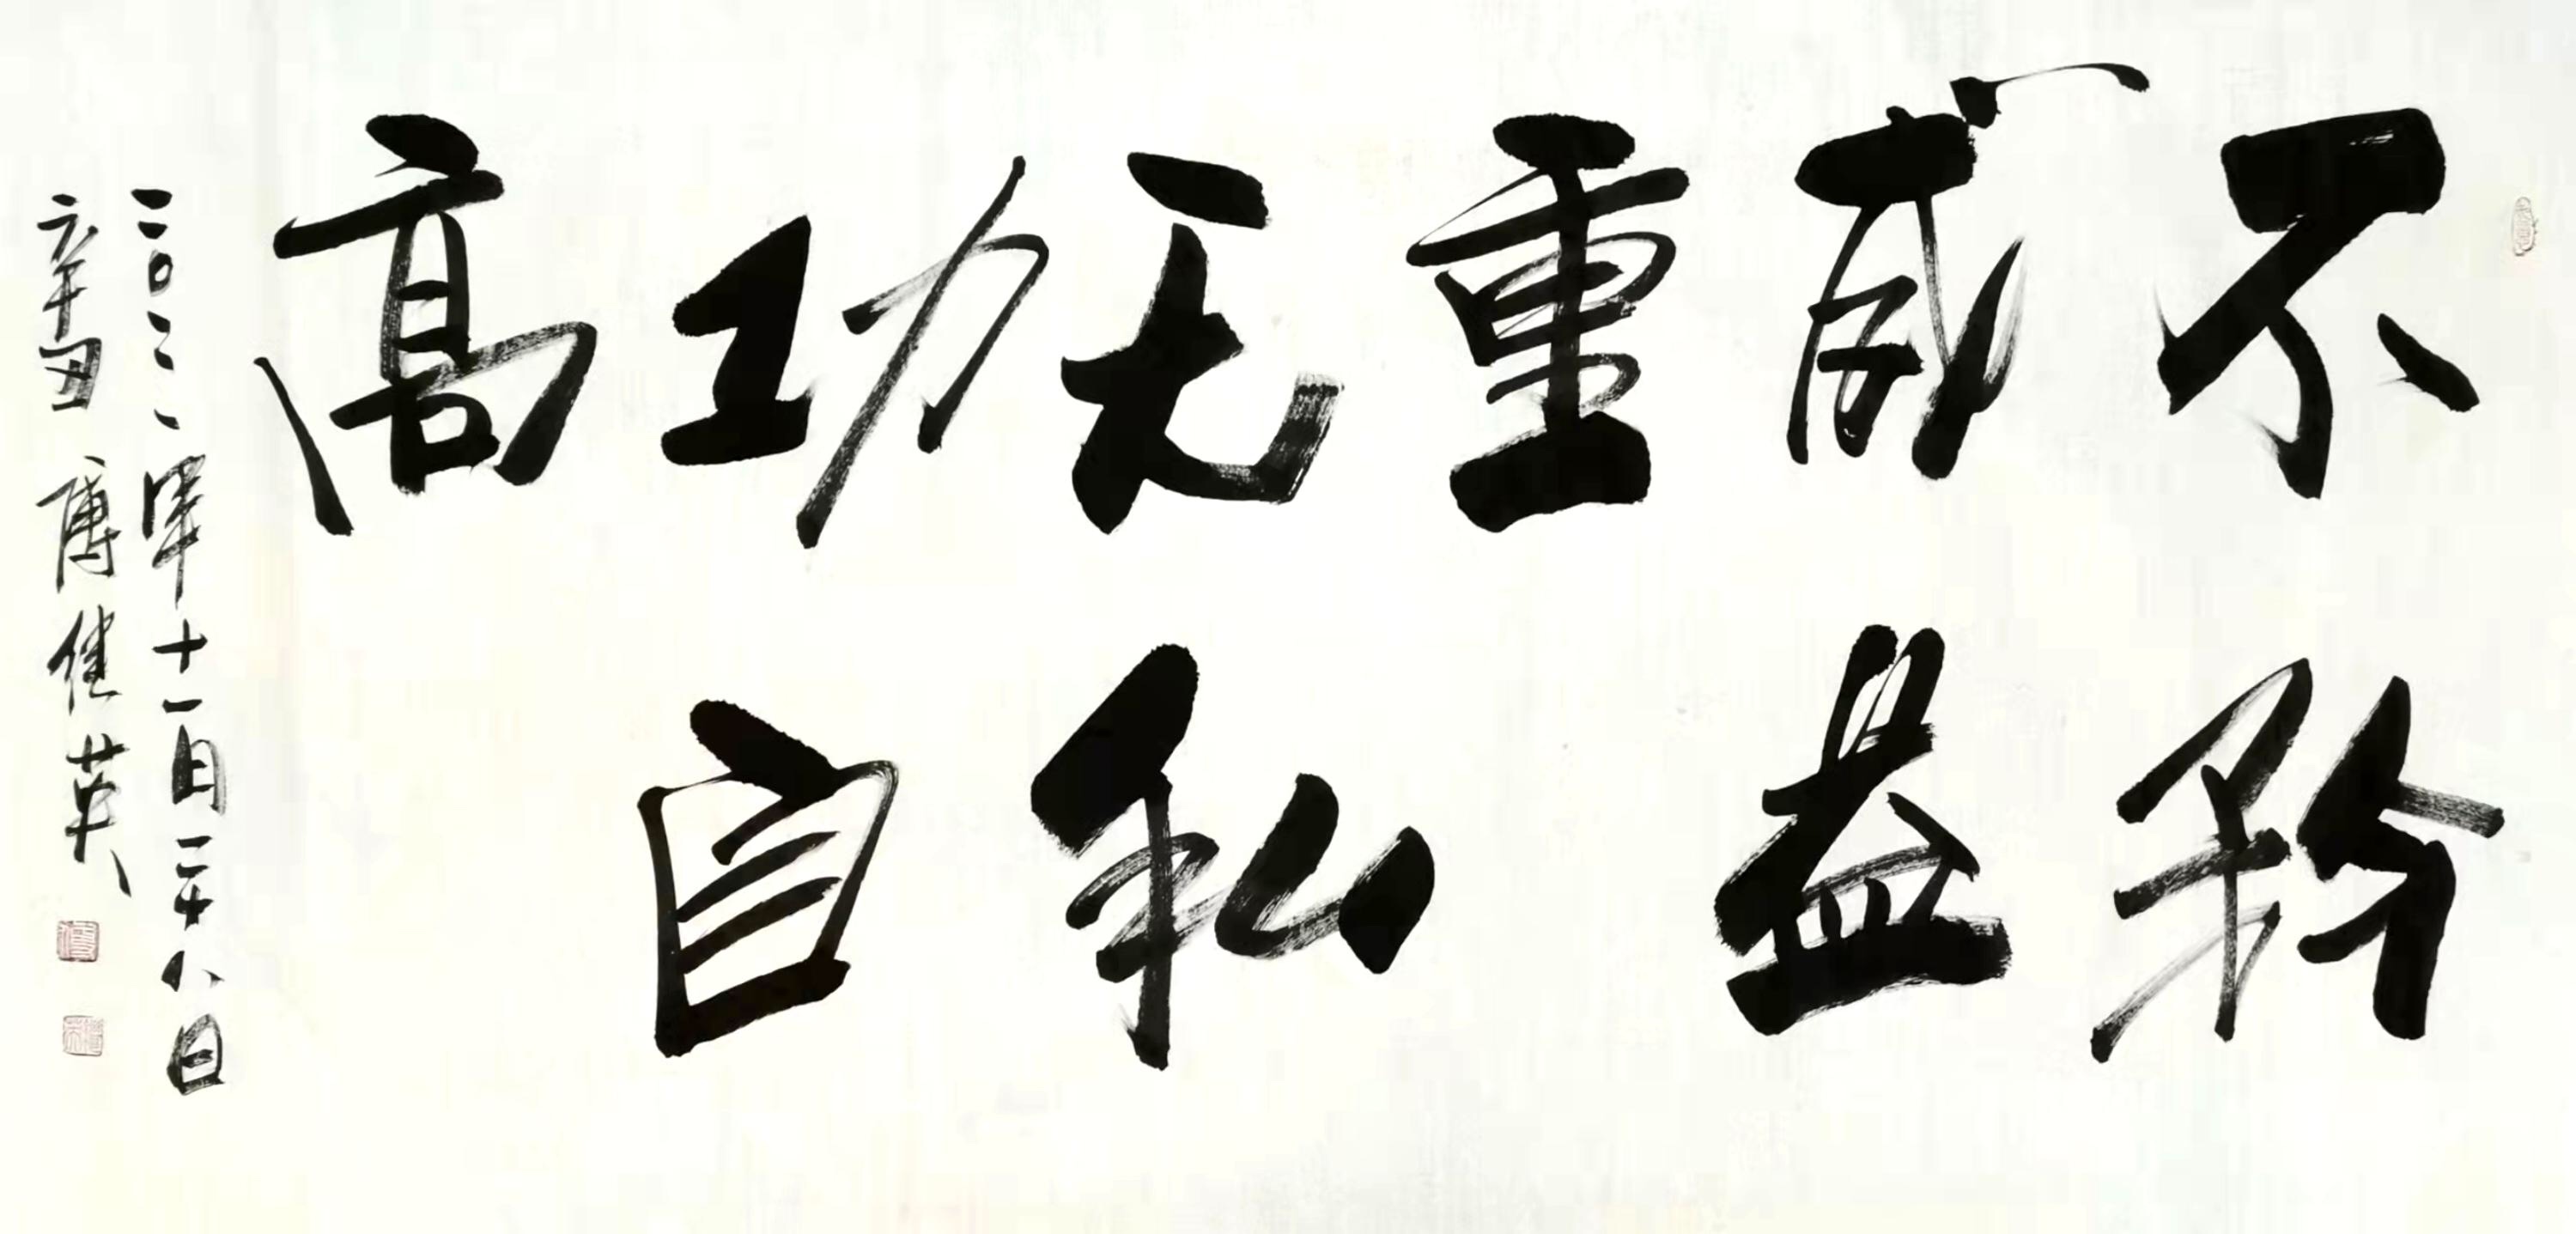 不矜
威益
重
无私
功自
高
二〇二一年十一月二十八日
辛丑 傅 英